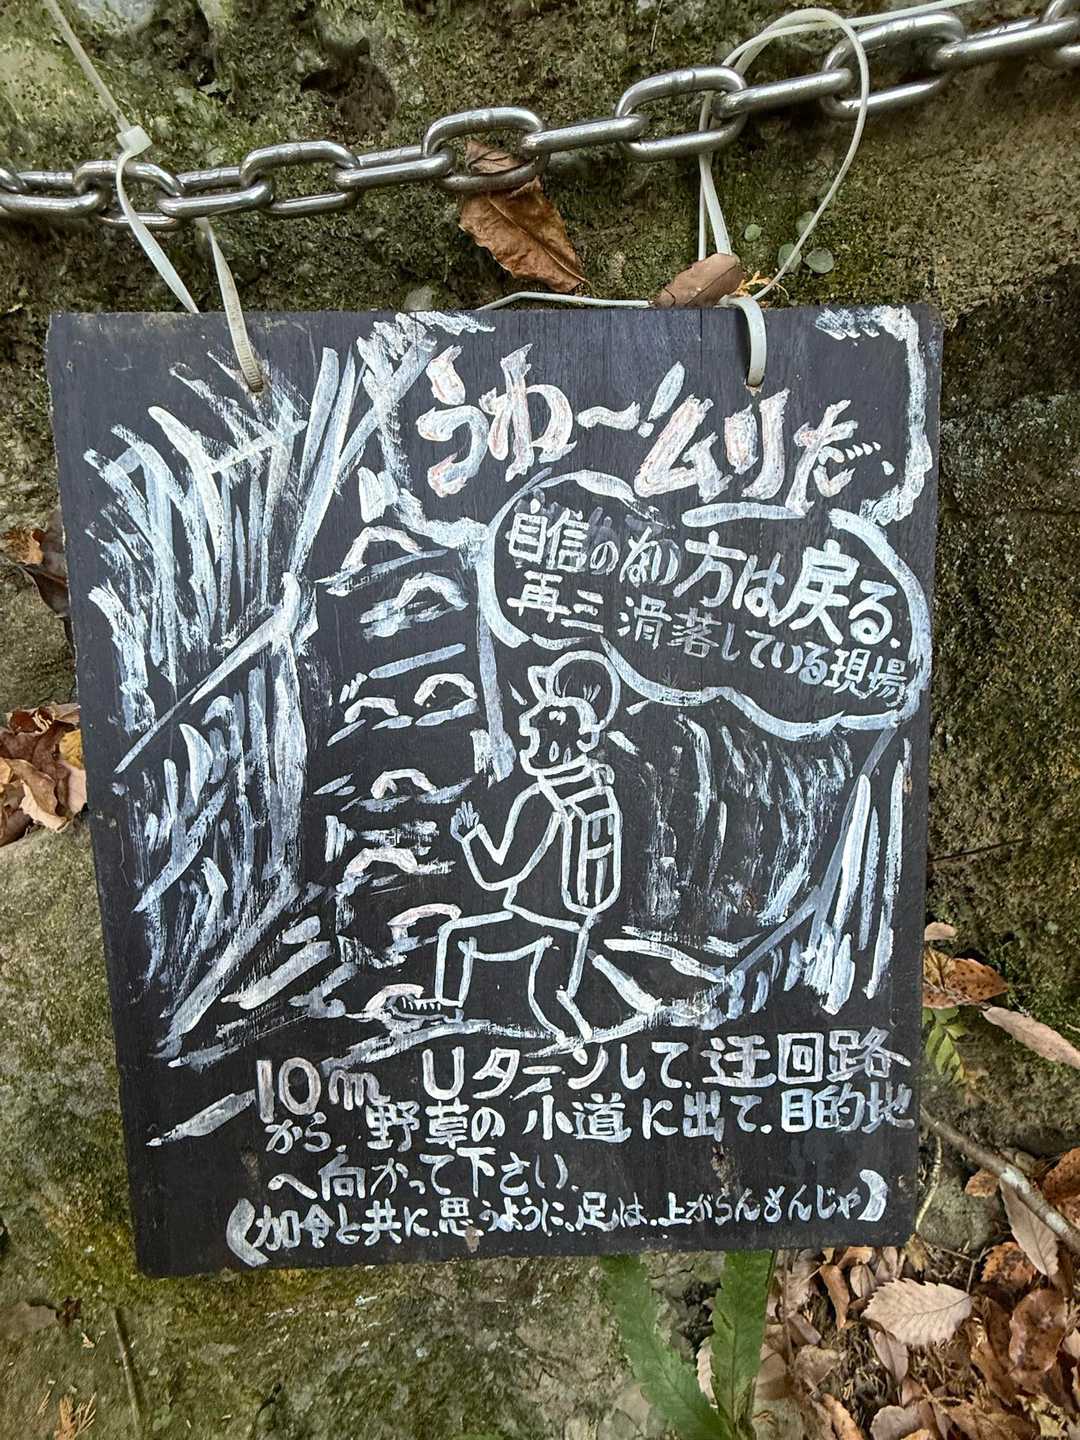 うわ～!ムリだ…
自信のない方は戻る.
再三滑落している現場
10m Uターンして.迂回路
から.野草の小道に出て.目的地
へ向かって下さい.
(加令と共に.思うように、足は.上がらんもんじゃ)